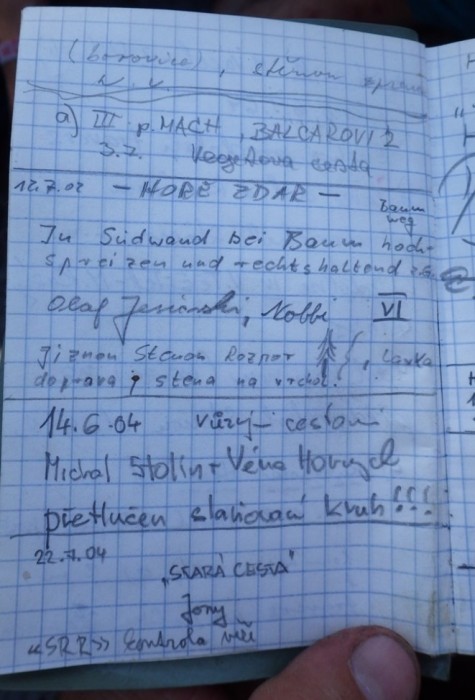 (borovice), stěnou zprava
N.V.
a) III p. MACH, BALCAROVI 2
3.7. Vegetova cesta
12.7.02 - HORĚ ZDAR - Baum
weg
In Südwand bei Baum hoch-
spreizen und rechtshaltend z.G.
Olaf, Nobbi VI
Jižnou Stěnou Rozpor, laxka
doprava, stěna na vrchol.
14.6.04 cestou
Michal Stolín + Věna
přetlučen slaňovací kruh!!!
22.7.04
„STARÁ CESTA"
Jony
«SRR» kontrola věží